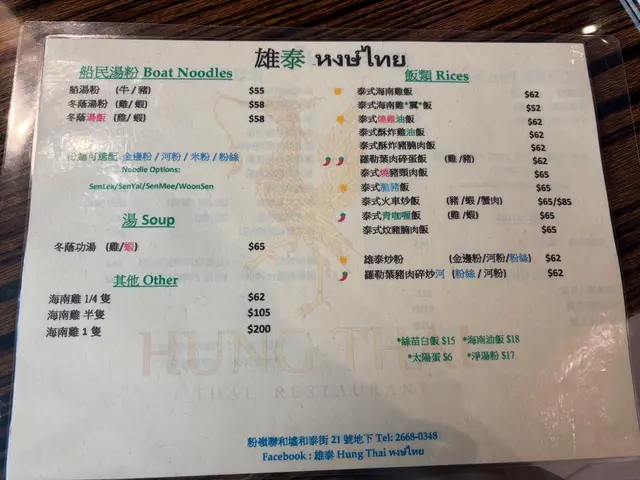 雄泰 หงษ์ไทย
船民湯粉 Boat Noodles
船湯粉 (牛/豬) $55
冬蔭湯粉 (雞/蝦) $58
冬蔭湯飯 (雞/蝦) $58
粉麵可選配 金邊粉/河粉/米粉/粉絲
Noodle Options:
SenLek/SenYai/SenMee/WoonSen
湯 Soup
冬蔭功湯 (雞/蝦) $65
其他 Other
海南雞 1/4 隻 $62
海南雞 半隻 $105
海南雞 1 隻 $200
飯類 Rices
泰式海南雞飯 $62
泰式海南雞*翼*飯 $52
泰式燒雞油飯 $62
泰式酥炸雞油飯 $62
泰式酥炸豬腩肉飯 $62
羅勒葉肉碎蛋飯 (雞/豬) $62
泰式燒豬頸肉飯 $65
泰式脆豬飯 $65
泰式火車炒飯 (豬/蝦/蟹肉) $65/$85
泰式青咖喱飯 (雞/蝦) $65
泰式炆豬腩肉飯 $65
雄泰炒粉 (金邊粉/河粉/粉絲) $62
羅勒葉豬肉碎炒河 (粉絲/河粉) $62
*絲苗白飯 $15 *海南油飯 $18
*太陽蛋 $6 *淨湯粉 $17
HUNG THAI
THAI RESTAURANT
粉嶺聯和墟和泰街 21 號地下 Tel: 2668-0348
Facebook : 雄泰 Hung Thai หงษ์ไทย